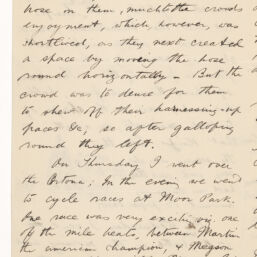 hose on them, much to the crowds
enjoyment, which, however, was
shortlived, as they next created
a space by moving the hose
round horizontally - But the
crowd was to dense for them
to shew off their harnessing-up
paces &c, so after galloping
round they left.
On Thursday I went over
the Ortona; In the evening we went
to cycle races at Moor Park.
One race was very exciting, one
of the mile heats, between Martin
the american champion, & Megson